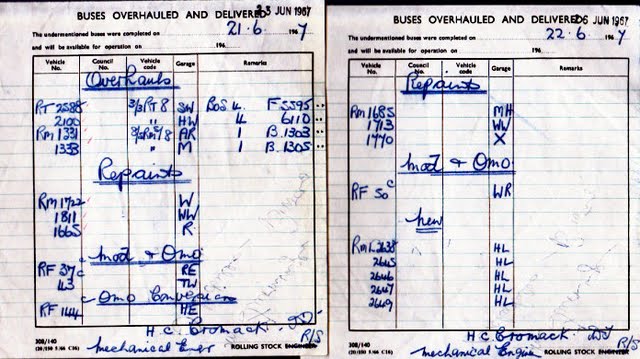 BUSES OVERHAULED AND DELIVERED 23 JUN 1967
The undermentioned buses were completed on 21.6 1967
and will be available for operation on 196
Vehicle No. Council No. Vehicle code Garage Remarks
Overhauls
RT 2588 3/3RT8 SW BOS 4. F5595
2100 " HW 4 6110
RM 1331 3/5RM7/8 AR 1 B.1303
1333 " M 1 B.1305
Repaints
RM 1722 W
1811 WW
1665 R
mod & Omo
RF 37c RE
43 TW
Omo Conversion
RF 144 HE
H.C. Cromack.
R/S
308/140
(20/150 5/66 C36) mechanical Engr ROLLING STOCK ENGINEER
BUSES OVERHAULED AND DELIVERED 26 JUN 1967
The undermentioned buses were completed on 22.6 1967
and will be available for operation on 196
Vehicle No. Council No. Vehicle code Garage Remarks
Repaints
RM 1685 MH
1713 WW
1770 X
mod & Omo
RF 50c WR
new
RML 2638 HL
2645 HL
2646 HL
2647 HL
2649 HL
H.C. Cromack.
R/S
308/140
(20/150 5/66 C36) mechanical Engin ROLLING STOCK ENGINEER